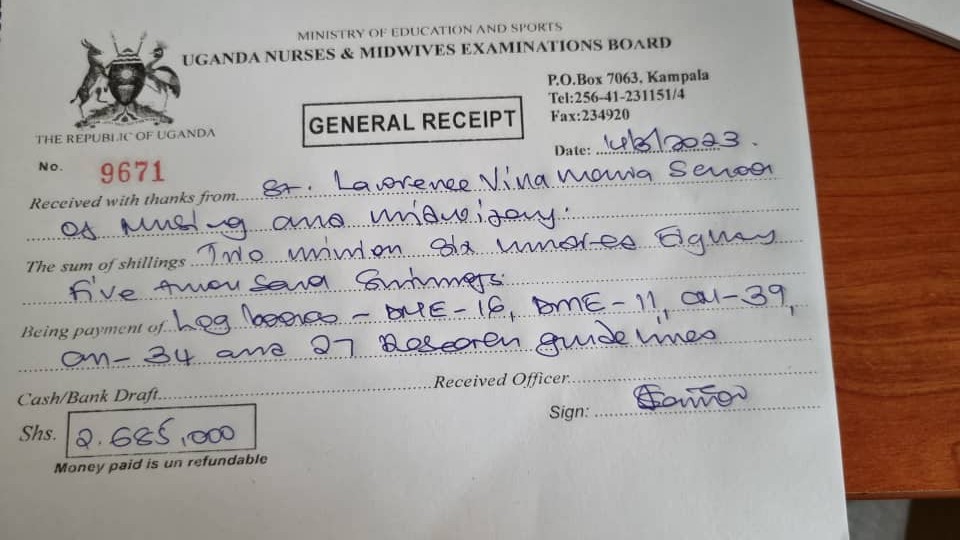 MINISTRY OF EDUCATION AND SPORTS
UGANDA NURSES & MIDWIVES EXAMINATIONS BOARD
P.O.Box 7063, Kampala
Tel:256-41-231151/4
Fax:234920
THE REPUBLIC OF UGANDA
GENERAL RECEIPT
No. 9671
Date: 14/3/2023.
Received with thanks from St. Lawrence Villa Maria School
of Nursing and midwifery.
The sum of shillings Two million Six hundred Eighty
five thousand Shillings
Being payment of Log books - DME-16, DME-11, CM-39,
CN-34 and 27 Research guidelines
Cash/Bank Draft
Received Officer
Sign:
Shs. 2.685,000
Money paid is un refundable